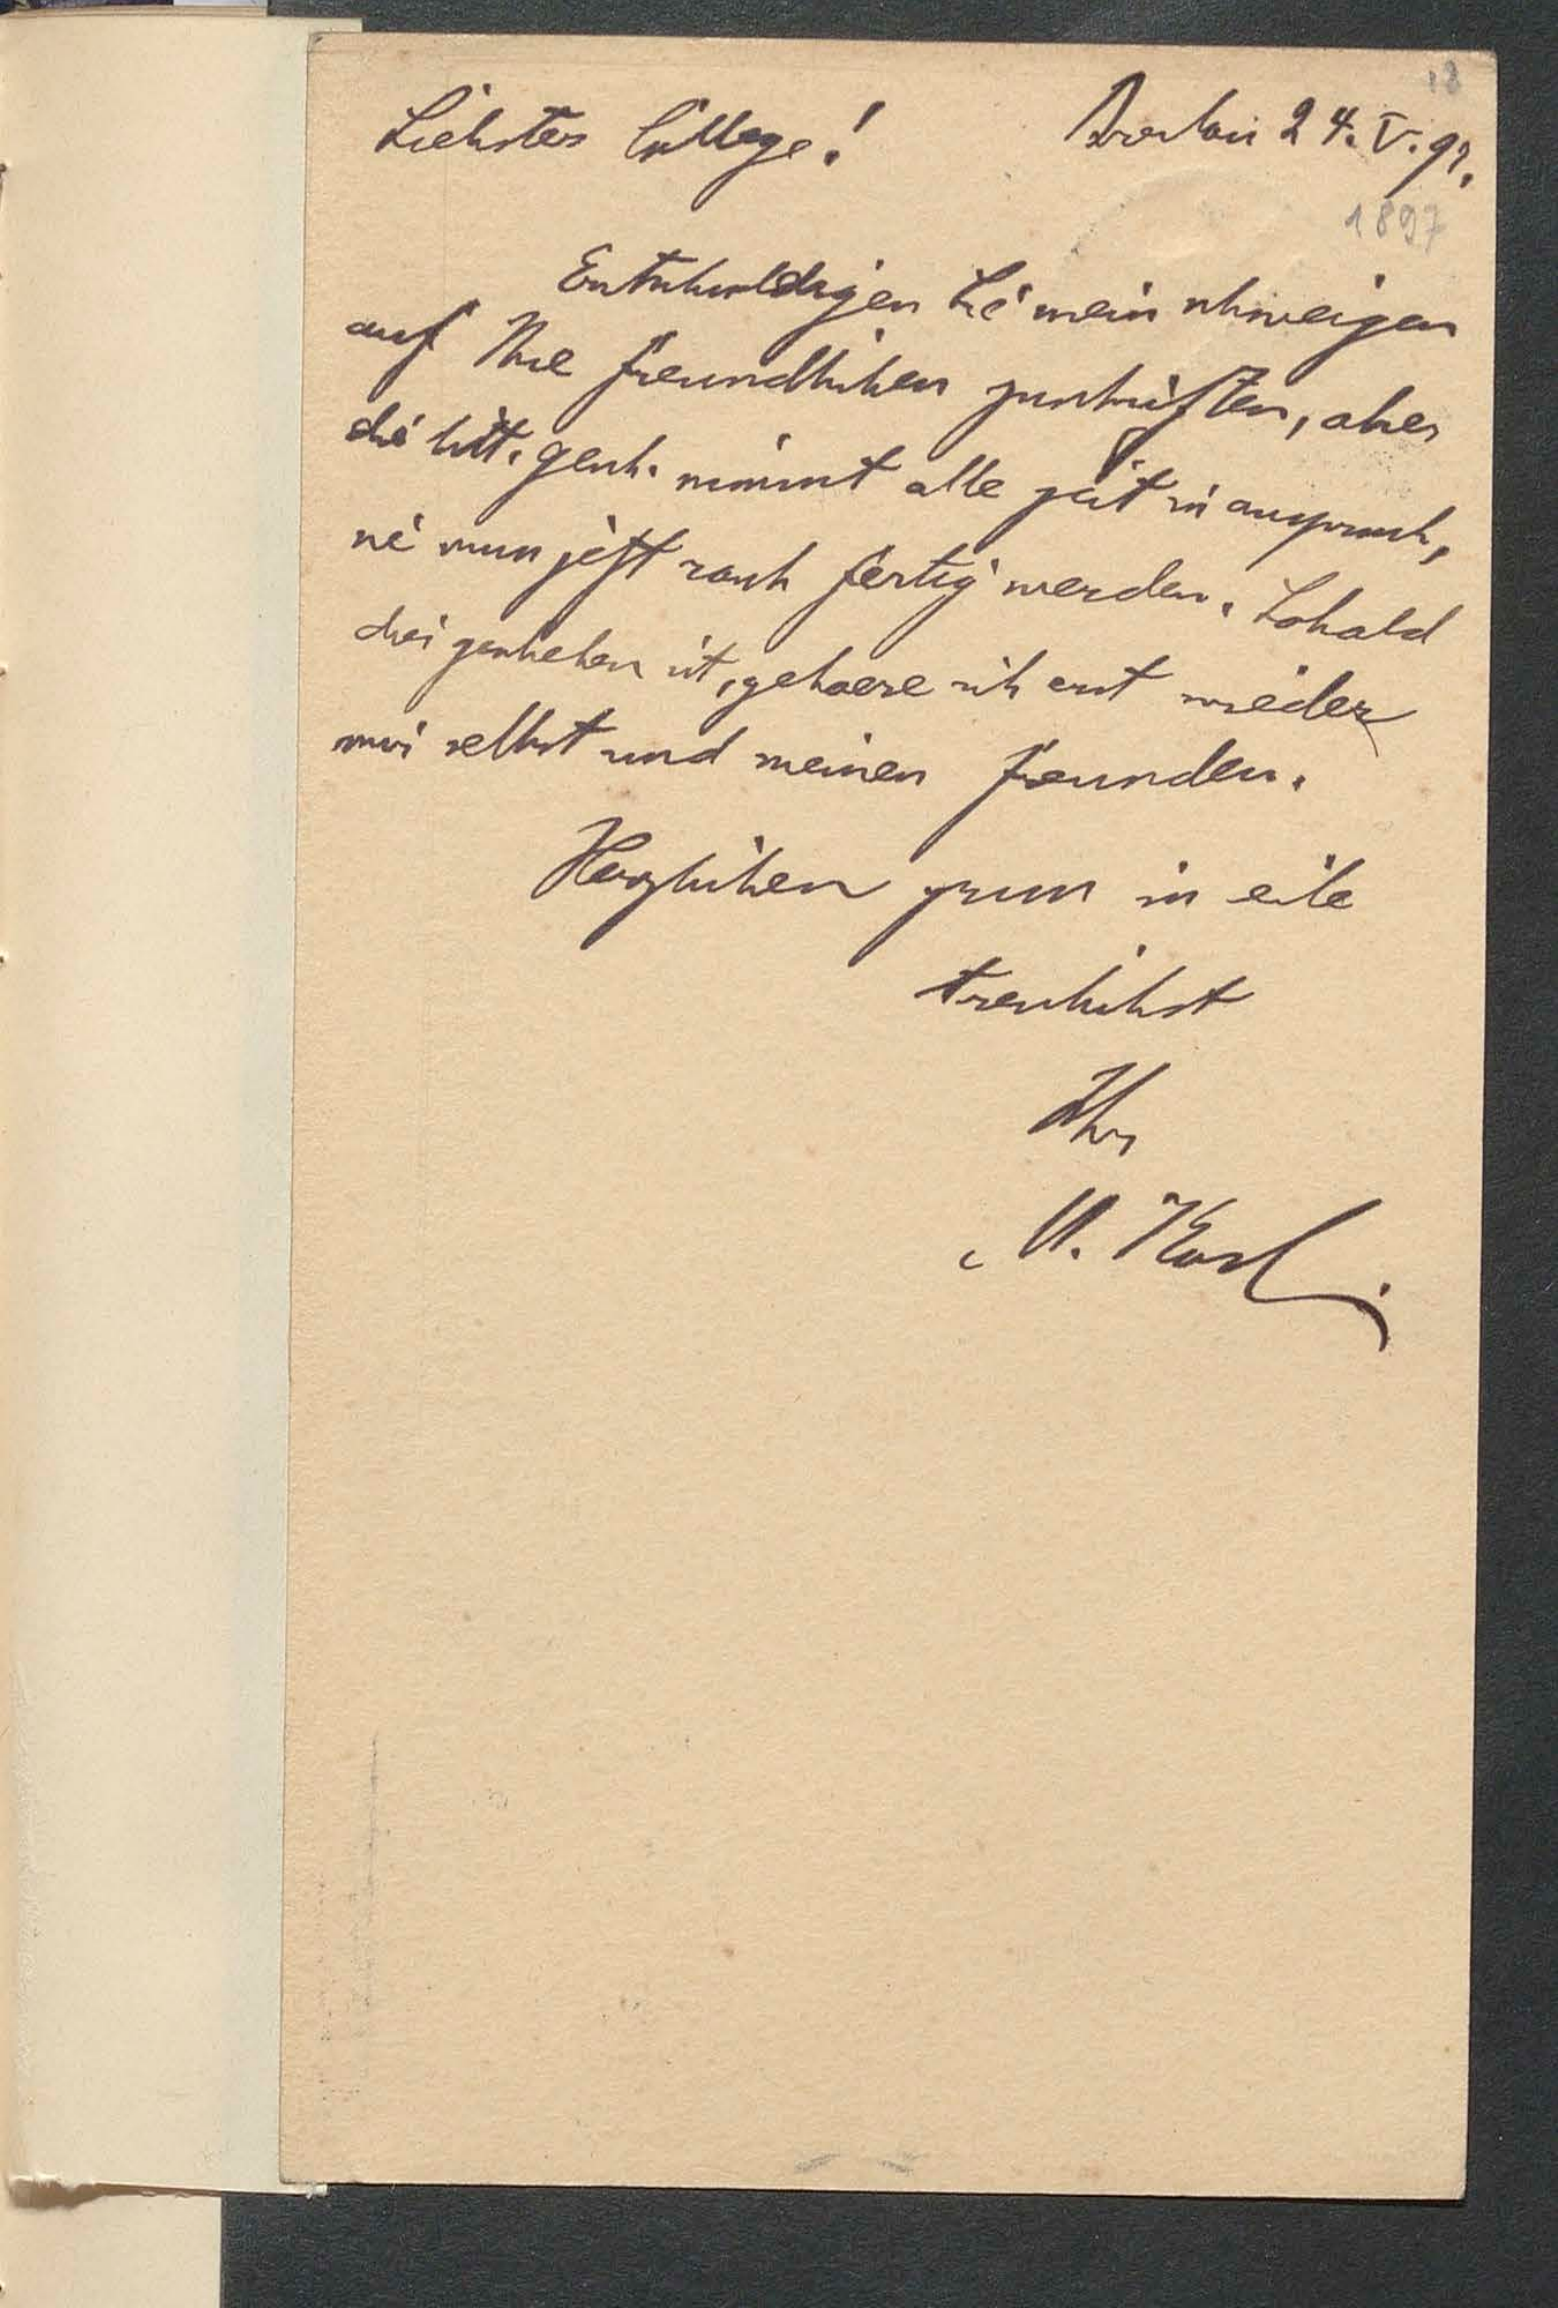 18
Liebster College! Breslau 24. V. 97.
1897
Entschuldigen Sie mein schweigen
auf Ihre freundlichen zuschriften, aber
die litt. gesch. nimmt alle zeit in anspruch,
sie muss jetzt rasch fertig werden. Sobald
dies geschehen ist, gehoere ich erst wieder
mir selbst und meinen freunden.
Herzlichen gruss in eile
treulichst
Ihr
M. Koch.